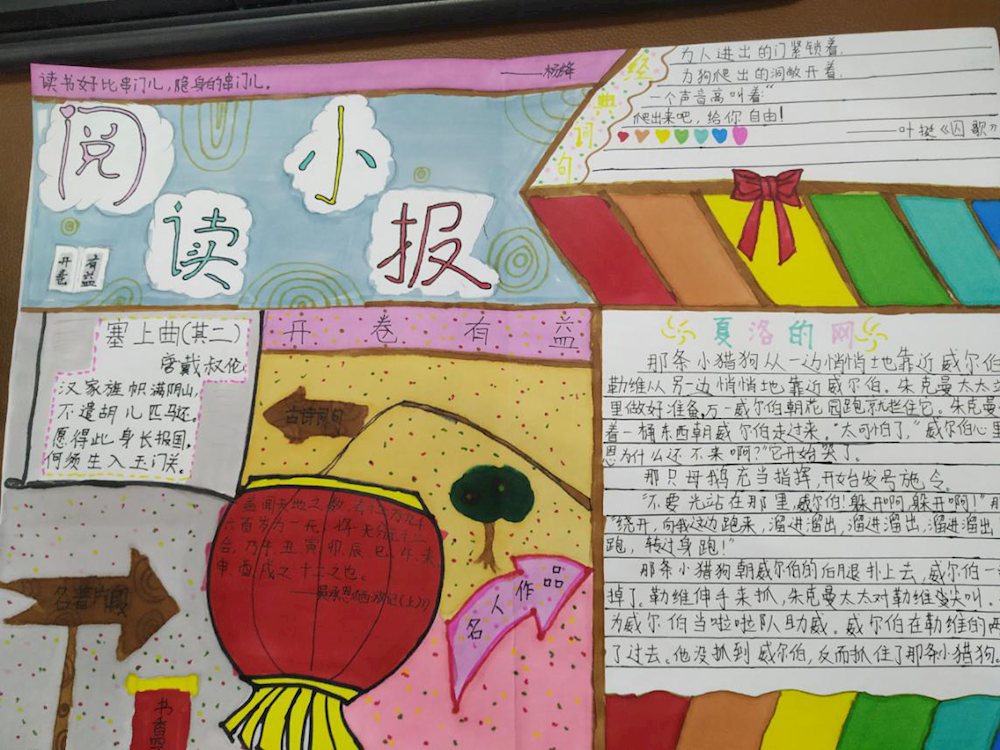 读书好比串门儿,隐身的串门儿。
——杨绛
阅读小报
开卷有益
经典词句
为人进出的门紧锁着,
为狗爬出的洞敞开着,
一个声音高叫着:
爬出来吧,给你自由!
——叶挺《囚歌》
塞上曲(其二)
唐戴叔伦
汉家旌帜满阴山,
不遣胡儿匹马还。
愿得此身长报国,
何须生入玉门关。
开卷有益
古诗词句
盖闻天地之数,有十二万九千
六百岁为一元。
台,乃子、丑、寅、卯、辰、巳、午、未、
申、酉、戌之十二之也。
——吴承恩《西游记(上)》
名著片段
名人作品
书香
夏洛的网
那条小猎狗从一边悄悄地靠近威尔伯
勒维从另一边悄悄地靠近威尔伯。朱克曼太太
里做好准备,万一威尔伯朝花园跑就拦住它。朱克曼
着一桶东西朝威尔伯走过来,“太可怕了,”威尔伯心里
恩为什么还不来啊?”它开始哭了。
那只母鹅充当指挥,开始发号施令。
“不要光站在那里,威尔伯!躲开啊,躲开啊!”那
“绕开,向我这边跑来,溜进溜出,溜进溜出,溜进溜出
跑,转过身跑!”
那条小猎狗朝威尔伯的后腿扑上去,威尔伯一
掉了。勒维伸手来抓,朱克曼太太对勒维尖叫,
为威尔伯当啦啦队助威。威尔伯在勒维的两
了过去。他没抓到威尔伯,反而抓住了那条小猎狗。